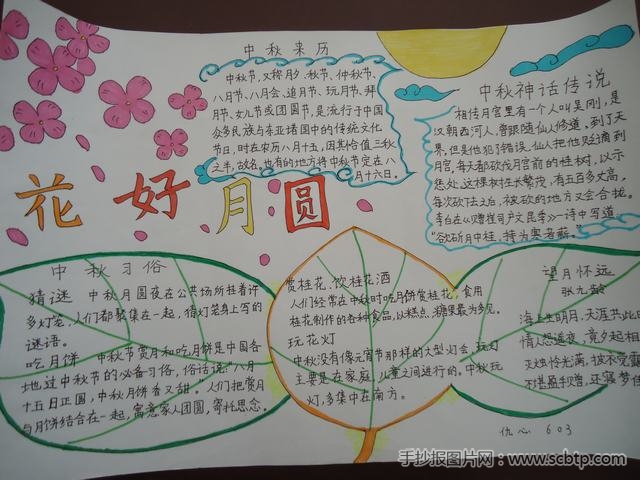 中秋来历
中秋节,又称月夕、秋节、仲秋节、
八月节、八月会、追月节、玩月节、拜
月节、女儿节或团圆节,是流行于中国
众多民族与东亚诸国中的传统文化
节日,时在农历八月十五,因其恰值三秋
之半,故名。也有的地方将中秋节定在八
月十六日。
中秋神话传说
相传月宫里有一个人叫吴刚,是
汉朝西河人,曾跟随仙人修道,到了天
界,但是他犯了错误,仙人把他贬谪到
月宫,每天都砍伐月宫前的桂树,以示
惩处。这棵树生长繁茂,有五百多丈高,
每次砍下去之后,被砍的地方又会合拢。
李白在《赠崔司户文昆季》一诗中写道
“欲斫月中桂,持为寒者薪。”
花好月圆
中秋习俗
猜谜 中秋月圆夜在公共场所挂着许
多灯笼,人们都聚集在一起,猜灯笼身上写的
谜语。
吃月饼 中秋节赏月和吃月饼是中国各
地过中秋节的必备习俗,俗话说:“八月
十五日正圆,中秋月饼香又甜”。人们把赏月
与月饼结合在一起,寓意家人团圆,寄托思念。
赏桂花、饮桂花酒
人们经常在中秋时吃月饼赏桂花,食用
桂花制作的各种食品,以糕点、糖果最为多见。
玩花灯
中秋没有像元宵节那样的大型灯会,玩灯
主要是在家庭、儿童之间进行的。中秋玩
灯,多集中在南方。
望月怀远
张九龄
海上生明月,天涯共此
情人怨遥夜,竟夕起相
灭烛怜光满,披衣觉露
不堪盈手赠,还寝梦佳
仇心 603
手抄报图片网:www.scbtp.com